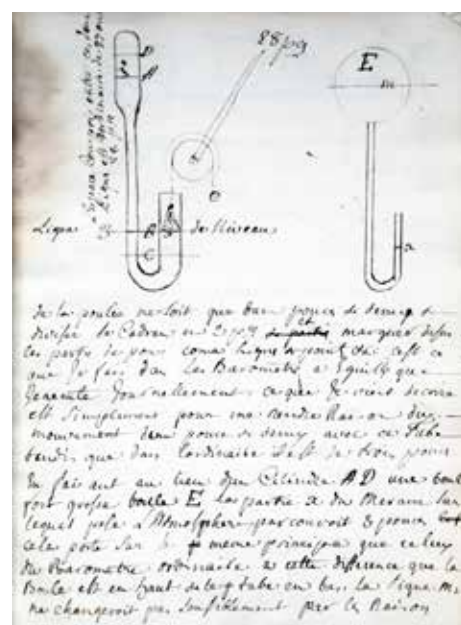 28 pg
D
A
E
m
Ligne
B
de Niveau
C
a
de la poulie ne soit que d'un pouce et demy et
divisé le Cadran en 28 pg marquer dessus
les parties de pouce comme ligne et point c'est ce
que je fais dans les Barometre a Eguille que
Journellement ce que je viens decrire
est simplement pour rendre Raison du
mouvement d'un pouce et demy avec ce Tube
tandis que dans l'ordinaire il est de trois pouces
En faisant au lieu du Cilindre AD une boule
fort grosse boulle E la partie a du Mercure sur
lequel pose l'Atmosphere parcouroit 3 pouces
cela porte sur le meme principe que celuy
du Barometre ordinaire a cette difference que la
Boule est en haut de le tube en bas. la ligne m,
ne changeroit pas sensiblement par la Raison